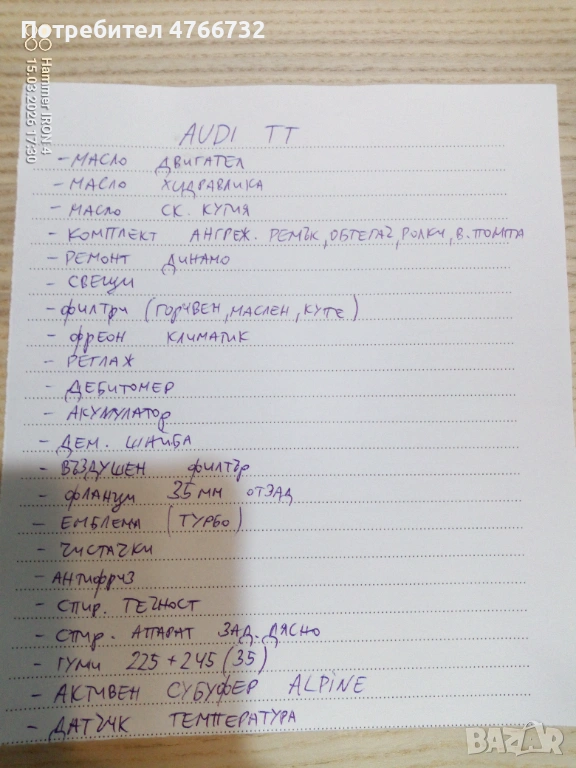 Потребител 4766732
Hammer IRON 4
15.03.2025 17:30
AUDI TT
- МАСЛО ДВИГАТЕЛ
- МАСЛО ХИДРАВЛИКА
- МАСЛО СК. КУТИЯ
- КОМПЛЕКТ АНГРЕЖ. РЕМЪК, ОБТЕГАЧ, РОЛКИ, В. ПОМПА
- РЕМОНТ ДИНАМО
- СВЕЩИ
- ФИЛТРИ (ГОРИВЕН, МАСЛЕН, КУПЕ)
- ФРЕОН КЛИМАТИК
- РЕГЛАЖ
- ДЕБИТОМЕР
- АКУМУЛАТОР
- ДЕМ. ШАЙБА
- ВЪЗДУШЕН ФИЛТЪР
- ФЛАНЦИ 35 ММ ОТЗАД
- ЕМБЛЕМА (ТУРБО)
- ЧИСТАЧКИ
- АНТИФРИЗ
- СПИР. ТЕЧНОСТ
- СПИР. АПАРАТ ЗАД. ДЯСНО
- ГУМИ 225 + 245 (35)
- АКТИВЕН СУБУФЕР ALPINE
- ДАТЧИК ТЕМПЕРАТУРА
BAZAR